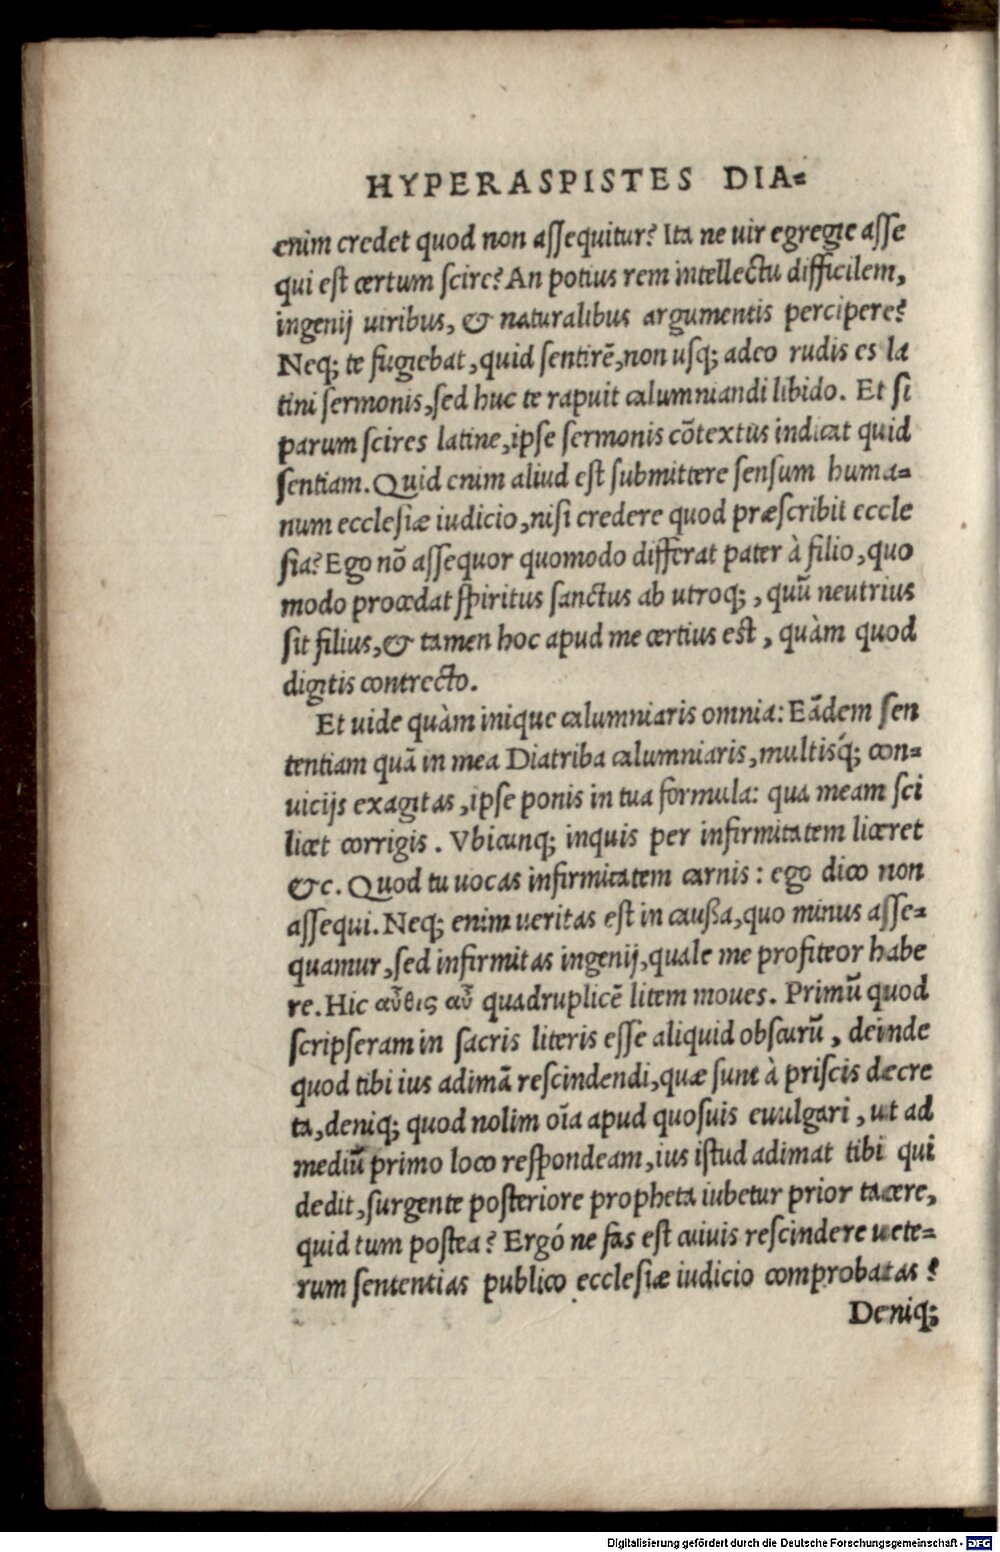 HYPERASPISTES DIA=
enim credet quod non aſſequitur? Ita ne uir egregie aſſe
qui eſt certum ſcire? An potius rem intellectu difficilem,
ingenij uiribus, & naturalibus argumentis percipere?
Neq; te fugiebat, quid ſentirē, non uſq; adeo rudis es la
tini ſermonis, ſed huc te rapuit calumniandi libido. Et ſi
parum ſcires latine, ipſe ſermonis cōtextus indicat quid
ſentiam. Quid enim aliud eſt ſubmittere ſenſum huma=
num eccleſiæ iudicio, niſi credere quod præſcribit eccle
ſia? Ego nō aſſequor quomodo differat pater à filio, quo
modo procedat ſpiritus ſanctus ab utroq; , quū neutrius
ſit filius, & tamen hoc apud me certius eſt, quàm quod
digitis contrecto.
Et uide quàm inique calumniaris omnia: Eādem ſen
tentiam quā in mea Diatriba calumniaris, multisq́; con=
uicijs exagitas, ipſe ponis in tua formula: qua meam ſci
licet corrigis. Vbicunq; inquis per infirmitatem liceret
&c. Quod tu uocas infirmitatem carnis: ego dico non
aſſequi. Neq; enim ueritas eſt in cauſſa, quo minus aſſe=
quamur, ſed infirmitas ingenij, quale me profiteor habe
re. Hic αὖθις αὖ quadruplicē litem moues. Primū quod
ſcripſeram in ſacris literis eſſe aliquid obſcurū, deinde
quod tibi ius adimā reſcindendi, quæ ſunt à priſcis decre
ta, deniq; quod nolim oīa apud quoſuis euulgari, ut ad
mediū primo loco reſpondeam, ius iſtud adimat tibi qui
dedit, ſurgente poſteriore propheta iubetur prior tacere,
quid tum poſtea? Ergó ne fas eſt cuiuis reſcindere uete=
rum ſententias publico eccleſiæ iudicio comprobatas?
Deniq;
Digitalisierung gefördert durch die Deutsche Forschungsgemeinschaft - DFG